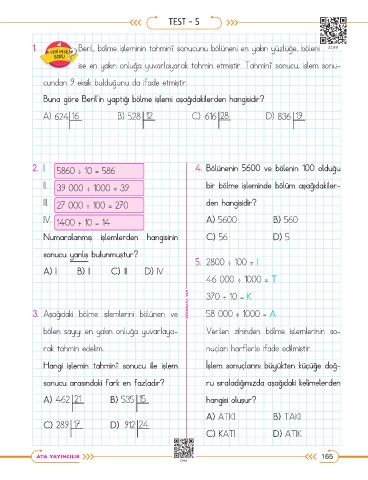 TEST - 5
1. YENİ NESİL SORU Beril, bölme işleminin tahminî sonucunu bölüneni en yakın yüzlüğe, böleni
ise en yakın onluğa yuvarlayarak tahmin etmiştir. Tahminî sonucu, işlem sonu-
cundan 9 eksik bulduğunu da ifade etmiştir.
Buna göre Beril'in yaptığı bölme işlemi aşağıdakilerden hangisidir?
A) 624 16 B) 528 12 C) 616 28 D) 836 19
2. I. 5860 ÷ 10 = 586
II. 39 000 ÷ 1000 = 39
III. 27 000 ÷ 100 = 270
IV. 1400 ÷ 10 = 14
Numaralanmış işlemlerden hangisinin
sonucu yanlış bulunmuştur?
A) I B) II C) III D) IV
3. Aşağıdaki bölme işlemlerini bölünen ve
bölen sayıyı en yakın onluğa yuvarlaya-
rak tahmin edelim.
Hangi işlemin tahminî sonucu ile işlem
sonucu arasındaki fark en fazladır?
A) 462 21 B) 535 15
C) 289 17 D) 912 24
4. Bölünenin 5600 ve bölenin 100 olduğu
bir bölme işleminde bölüm aşağıdakiler-
den hangisidir?
A) 5600 B) 560
C) 56 D) 5
5. 2800 ÷ 100 = I
46 000 ÷ 1000 = T
370 ÷ 10 = K
58 000 ÷ 1000 = A
Verilen zihinden bölme işlemlerinin so-
nuçları harflerle ifade edilmiştir.
İşlem sonuçlarını büyükten küçüğe doğ-
ru sıraladığımızda aşağıdaki kelimelerden
hangisi oluşur?
A) ATKI B) TAKI
C) KATI D) ATIK
ATA YAYINCILIK
165